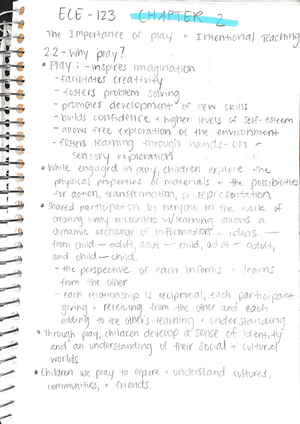 ECE-123 CHAPTER 2
The Importance of play + Intentional Teaching
2.2 - Why play?
• Play: - inspires imagination
- facilitates creativity
- fosters problem solving
- promotes development of new skills
- builds confidence + higher levels of self-esteem
- allows free exploration of the environment
- fosters learning through hands-on +
sensory exploration
• While engaged in play, children explore the
physical properties of materials + the possibilities
for action, transformation, or representation
• Shared participation by everyone in the work of
creating lively encounters w/learning allows a
dynamic exchange of information - ideas -
from child-adult, adult-child, adult-adult,
and child-child.
- the perspective of each informs + learns
from the other
- each relationship is reciprocal, each participant
giving + receiving from the other and each
adding to the other's learning + understanding
• Through play, children develop a sense of identity
and an understanding of their social-cultural
worlds
• Children use play to explore + understand cultures,
communities, + friends.